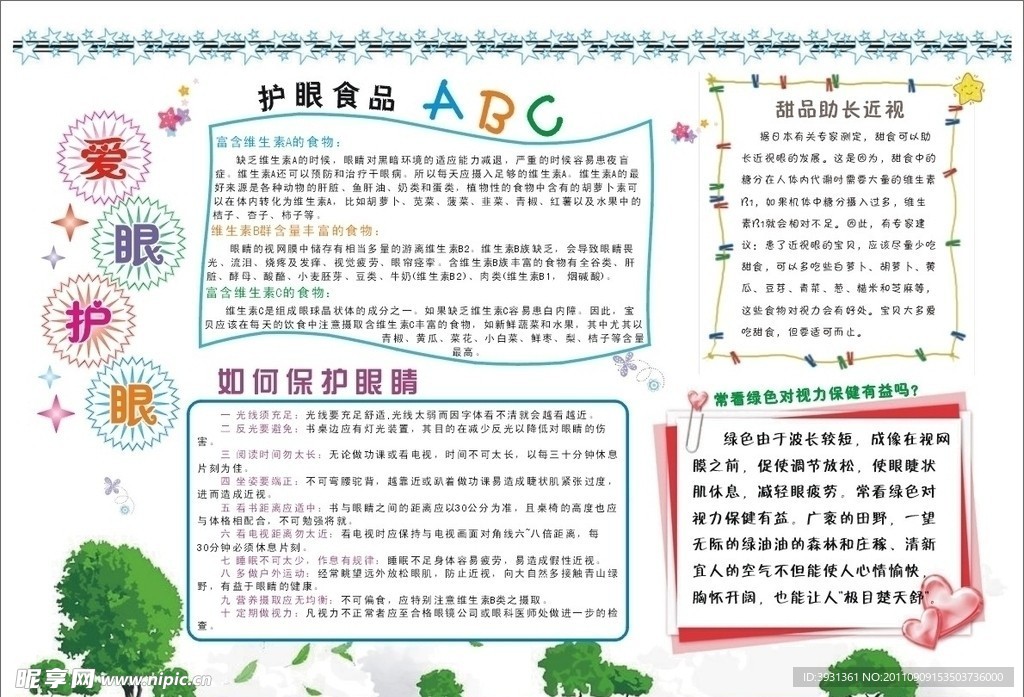 爱
眼
护
眼
护眼食品 ABC
富含维生素A的食物：
缺乏维生素A的时候，眼睛对黑暗环境的适应能力减退，严重的时候容易患夜盲
症。维生素A还可以预防和治疗干眼病。所以每天应摄入足够的维生素A。维生素A的最
好来源是各种动物的肝脏、鱼肝油、奶类和蛋类，植物性的食物中含有的胡萝卜素可
以在体内转化为维生素A，比如胡萝卜、苋菜、菠菜、韭菜、青椒、红薯以及水果中的
桔子、杏子、柿子等。
维生素B群含量丰富的食物：
眼睛的视网膜中储存有相当多量的游离维生素B2。维生素B族缺乏，会导致眼睛畏
光、流泪、烧疼及发痒、视觉疲劳、眼帘痉挛。含维生素B族丰富的食物有全谷类、肝
脏、酵母、酸酪、小麦胚芽、豆类、牛奶(维生素B2)、肉类(维生素B1， 烟碱酸)。
富含维生素C的食物：
维生素C是组成眼球晶状体的成分之一。如果缺乏维生素C容易患白内障。因此，宝
贝应该在每天的饮食中注意摄取含维生素C丰富的食物，如新鲜蔬菜和水果，其中尤其以
青椒、黄瓜、菜花、小白菜、鲜枣、梨、桔子等含量
最高。
如何保护眼睛
一 光线须充足：光线要充足舒适,光线太弱而因字体看不清就会越看越近。
二 反光要避免：书桌边应有灯光装置，其目的在减少反光以降低对眼睛的伤
害。
三 阅读时间勿太长：无论做功课或看电视，时间不可太长，以每三十分钟休息
片刻为佳。
四 坐姿要端正：不可弯腰驼背，越靠近或趴着做功课易造成睫状肌紧张过度，
进而造成近视。
五 看书距离应适中：书与眼睛之间的距离应以30公分为准，且桌椅的高度也应
与体格相配合，不可勉强将就。
六 看电视距离勿太近：看电视时应保持与电视画面对角线六~八倍距离，每
30分钟必须休息片刻。
七 睡眠不可太少，作息有规律：睡眠不足身体容易疲劳，易造成假性近视。
八 多做户外运动：经常眺望远外放松眼肌，防止近视，向大自然多接触青山绿
野，有益于眼睛的健康。
九 营养摄取应无均衡：不可偏食，应特别注意维生素B类之摄取。
十 定期做视力：凡视力不正常者应至合格眼镜公司或眼科医师处做进一步的检
查。
甜品助长近视
据日本有关专家测定，甜食可以助
长近视眼的发展。这是因为，甜食中的
糖分在人体内代谢时需要大量的维生素
B1，如果机体中糖分摄入过多，维生
素B1就会相对不足。因此，有专家建
议；患了近视眼的宝贝，应该尽量少吃
甜食，可以多吃些白萝卜、胡萝卜、黄
瓜、豆芽、青菜、葱、糙米和芝麻等，
这些食物对视力会有好处。宝贝大多爱
吃甜食，但要适可而止。
常看绿色对视力保健有益吗？
绿色由于波长较短，成像在视网
膜之前，促使调节放松，使眼睫状
肌休息，减轻眼疲劳。常看绿色对
视力保健有益。广袤的田野，一望
无际的绿油油的森林和庄稼、清新
宜人的空气不但能使人心情愉快，
胸怀开阔，也能让人“极目楚天舒”。
昵享网 www.nipic.cn
ID:3931361 NO:20110909153503736000